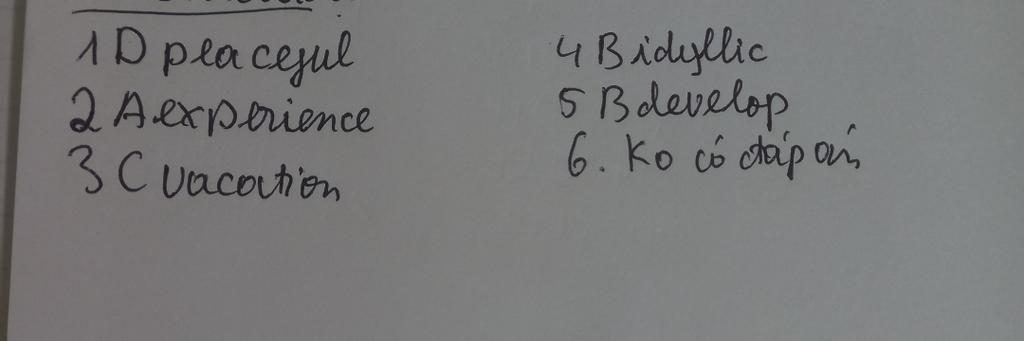 1 D peaceful
2 A experience
3 C vacation
4 B idyllic
5 B develop
6. Ko có đáp án